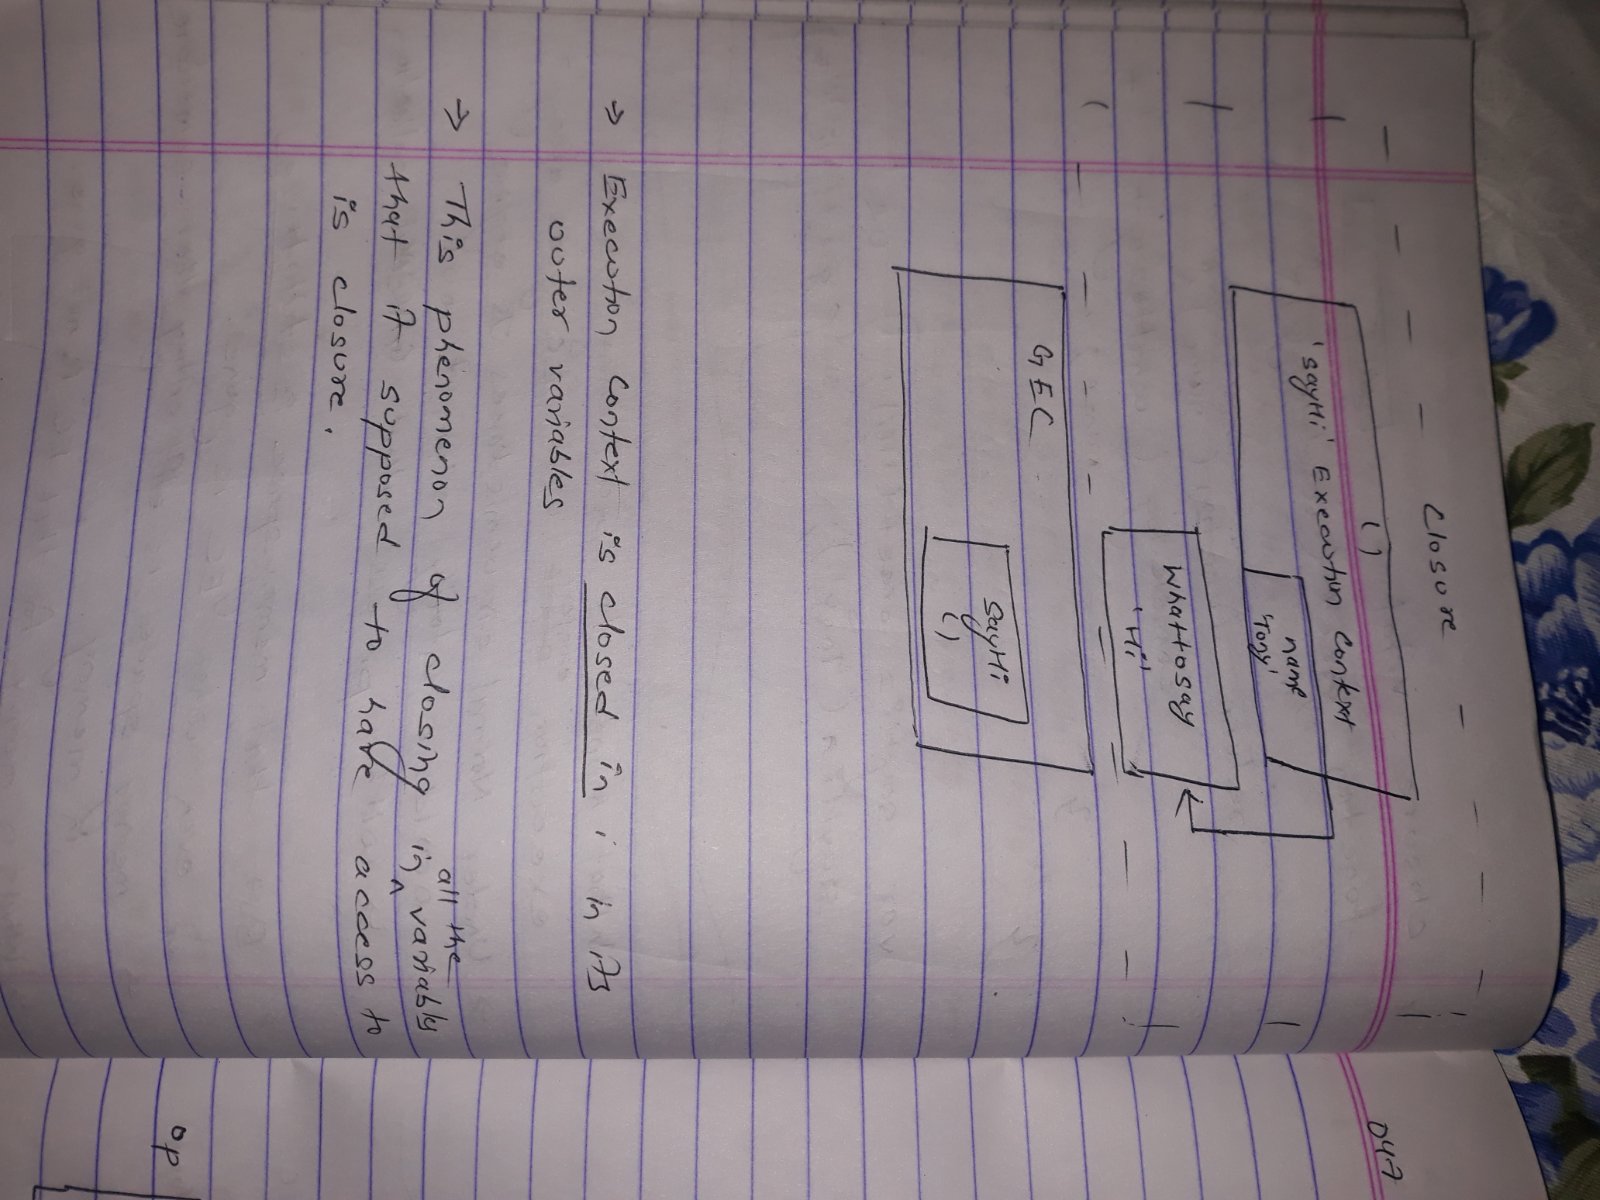 Closure
()
'sayHi' Execution Context
name
'Tony'
Whattosay
'Hi'
GEC
SayHi
()
→ Execution Context is closed in i in its
outer variables
→ This phenomenon of closing in ^ all the variables
that it supposed to have access to
is closure.
047
op